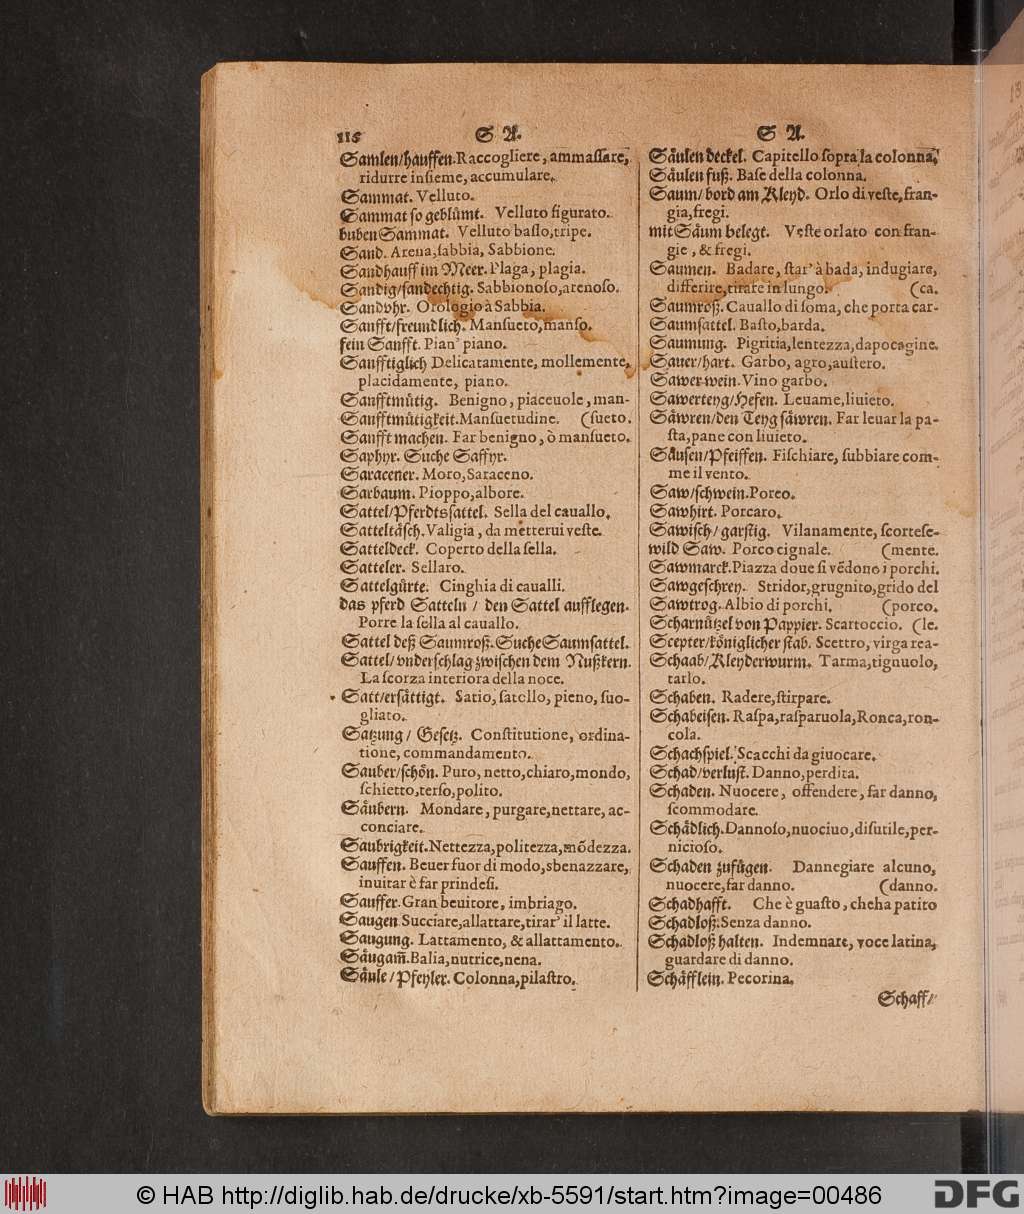 116
S A.
S A.
Samlen/hauffen. Raccogliere, ammaſſare,
ridurre inſieme, accumulare.
Sammat. Velluto.
Sammat ſo geblümt. Velluto figurato.
buben Sammat. Velluto baſſo, tripe.
Sand. Arena, ſabbia, Sabbione.
Sandhauff im Meer. Plaga, plagia.
Sandig/ſandechtig. Sabbionoſo, arenoſo.
Sandvhr. Orologio à Sabbia.
Sanfft/freundlich. Manſueto, manſo.
fein Sanfft. Pian' piano.
Sanfftiglich Delicatamente, mollemente,
placidamente, piano.
Sanfftmütig. Benigno, piaceuole, man-
Sanfftmütigkeit. Manſuetudine. (ſueto.
Sanfft machen. Far benigno, ò manſueto.
Saphyr. Suche Saffyr.
Saracener. Moro, Saraceno.
Sarbaum. Pioppo, albore.
Sattel/Pferdtsſattel. Sella del cauallo.
Satteltäſch. Valigia, da metterui veſte.
Satteldeck. Coperto della ſella.
Satteler. Sellaro.
Sattelgürte. Cinghia di caualli.
das pferd Satteln / den Sattel aufflegen.
Porre la ſella al cauallo.
Sattel deß Saumroß. Suche Saumſattel.
Sattel/vnderſchlag zwiſchen dem Nußkern.
La ſcorza interiora della noce.
Satt/erſättigt. Satio, ſatollo, pieno, ſuo-
gliato.
Satzung / Geſetz. Conſtitutione, ordina-
tione, commandamento.
Sauber/ſchön. Puro, netto, chiaro, mondo,
ſchietto, terſo, polito.
Säubern. Mondare, purgare, nettare, ac-
conciare.
Saubrigkeit. Nettezza, politezza, mõdezza.
Sauffen. Beuer fuor di modo, sbenazzare,
inuitar è far prindeſi.
Sauffer. Gran beuitore, imbriago.
Saugen Succiare, allattare, tirar' il latte.
Saugung. Lattamento, & allattamento.
Säugam̃. Balia, nutrice, nena.
Säule / Pfeyler. Colonna, pilaſtro.
Säulen deckel. Capitello ſopra la colonna.
Säulen fuß. Baſe della colonna.
Saum/ bord am Kleyd. Orlo di veſte, fran-
gia, fregi.
mit Säum belegt. Veſte orlato con fran-
gie, & fregi.
Saumen. Badare, ſtar' à bada, indugiare,
differire, tirare in lungo. (ca.
Saumroß. Cauallo di ſoma, che porta car-
Saumſattel. Baſto, barda.
Saumung. Pigritia, lentezza, dapocagine.
Sauer/hart. Garbo, agro, auſtero.
Sawer wein. Vino garbo.
Sawerteyg/Hefen. Leuame, liuieto.
Säwren/den Teyg ſäwren. Far leuar la pa-
ſta, pane con liuieto.
Säuſen/Pfeiffen. Fiſchiare, ſubbiare com-
me il vento.
Saw/ſchwein. Porco.
Sawhirt. Porcaro.
Sawiſch/ garſtig. Vilanamente, ſcorteſe-
wild Saw. Porco cignale. (mente.
Sawmarck. Piazza doue ſi vẽdono i porchi.
Sawgeſchrey. Stridor, grugnito, grido del
Sawtrog. Albio di porchi. (porco.
Scharnützel von Pappier. Scartoccio. (le.
Scepter/königlicher ſtab. Scettro, virga rea-
Schaab/Kleyderwurm. Tarma, tignuolo,
tarlo.
Schaben. Radere, ſtirpare.
Schabeiſen. Raſpa, raſparuola, Ronca, ron-
cola.
Schachſpiel. Scacchi da giuocare.
Schad/verluſt. Danno, perdita.
Schaden. Nuocere, offendere, far danno,
ſcommodare.
Schädlich. Dannoſo, nuociuo, diſutile, per-
nicioſo.
Schaden zufügen. Dannegiare alcuno,
nuocere, far danno. (danno.
Schadhafft. Che è guaſto, cheha patito
Schadloß. Senza danno.
Schadloß halten. Indemnare, voce latina,
guardare di danno.
Schäfflein. Pecorina.
Schaff/
© HAB http://diglib.hab.de/drucke/xb-5591/start.htm?image=00486
DFG